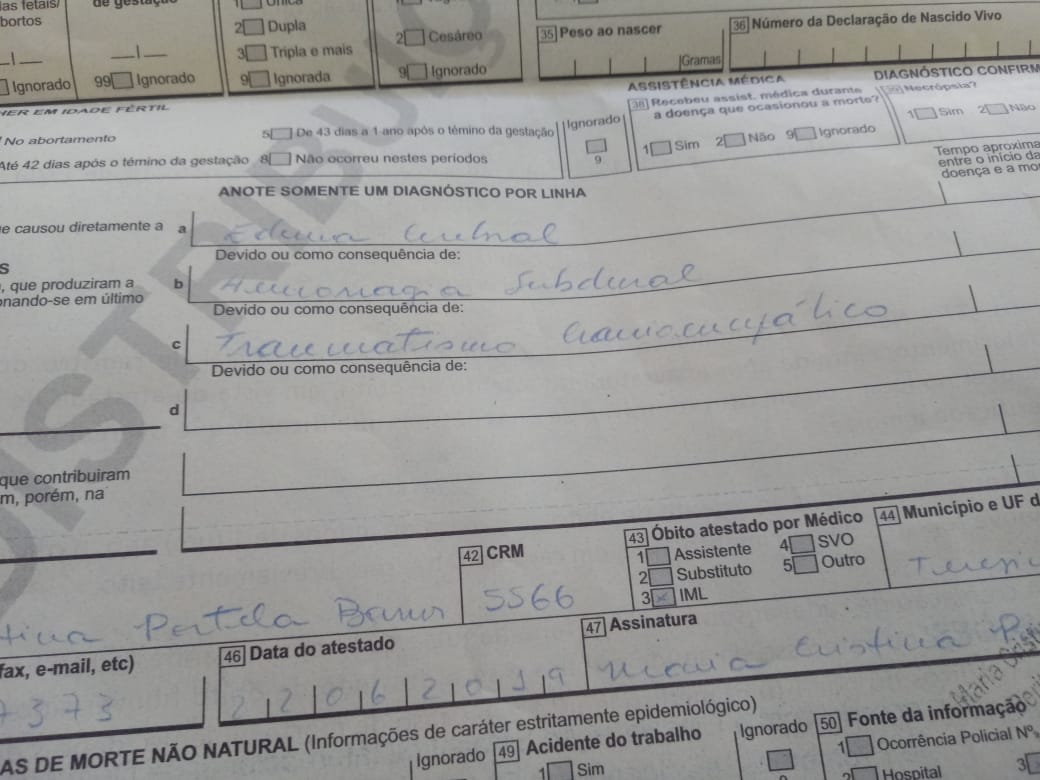 las fetais/ de gestação 1 Única
bortos 2 Dupla 2 Cesáreo 35 Peso ao nascer 36 Número da Declaração de Nascido Vivo
3 Tripla e mais
Ignorado 99 Ignorado 9 Ignorada 9 Ignorado Gramas
HER EM IDADE FÉRTIL ASSISTÊNCIA MÉDICA DIAGNÓSTICO CONFIRM
38 Recebeu assist. médica durante Necrópsia?
a doença que ocasionou a morte?
No abortamento 5 De 43 dias a 1 ano após o témino da gestação Ignorado 1 Sim 2 Não 9 Ignorado 1 Sim 2 Não
Até 42 dias após o témino da gestação 8 Não ocorreu nestes períodos 9
Tempo aproxima
entre o início da
doença e a mo
ANOTE SOMENTE UM DIAGNÓSTICO POR LINHA
e causou diretamente a a Edema Cerebral
Devido ou como consequência de:
S
, que produziram a b Hemorragia Subdural
onando-se em último
Devido ou como consequência de:
c Traumatismo Cranioencefálico
Devido ou como consequência de:
d
que contribuiram
m, porém, na
42 CRM 43 Óbito atestado por Médico 44 Município e UF d
1 Assistente 4 SVO
2 Substituto 5 Outro
3 x IML
tina Portela 5566
fax, e-mail, etc) 46 Data do atestado 47 Assinatura
7373 22062019 Maria Cristina P
AS DE MORTE NÃO NATURAL (Informações de caráter estritamente epidemiológico)
Ignorado 49 Acidente do trabalho Ignorado 50 Fonte da informação
1 Sim 9 1 Ocorrência Policial Nº
2 Hospital 3